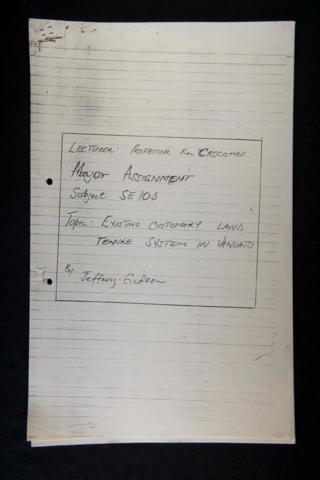 LECTURER: PROFESSOR Ron CROCOMBE
Major ASSIGNMENT
Subject: SE 103
TOPIC: EXISTING CUSTOMARY LAND
TENURE SYSTEM IN VANUATU
By Jeffrey Gideon